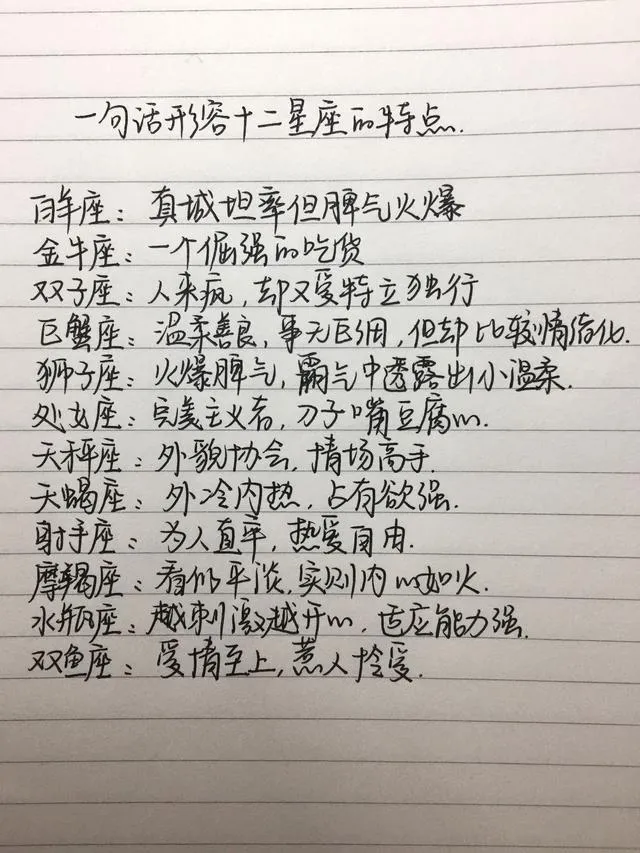 一句话形容十二星座的特点.
白羊座：真城坦率但脾气火爆
金牛座：一个倔强的吃货
双子座：人来疯，却又爱特立独行
巨蟹座：温柔善良，事无巨细，但却比较情绪化.
狮子座：火爆脾气，霸气中透露出小温柔.
处女座：完美主义者，刀子嘴豆腐心.
天秤座：外貌协会，情场高手.
天蝎座：外冷内热，占有欲强.
射手座：为人直率，热爱自由.
摩羯座：看似平淡，实则内心如火.
水瓶座：越刺激越开心，适应能力强.
双鱼座：爱情至上，惹人怜爱.